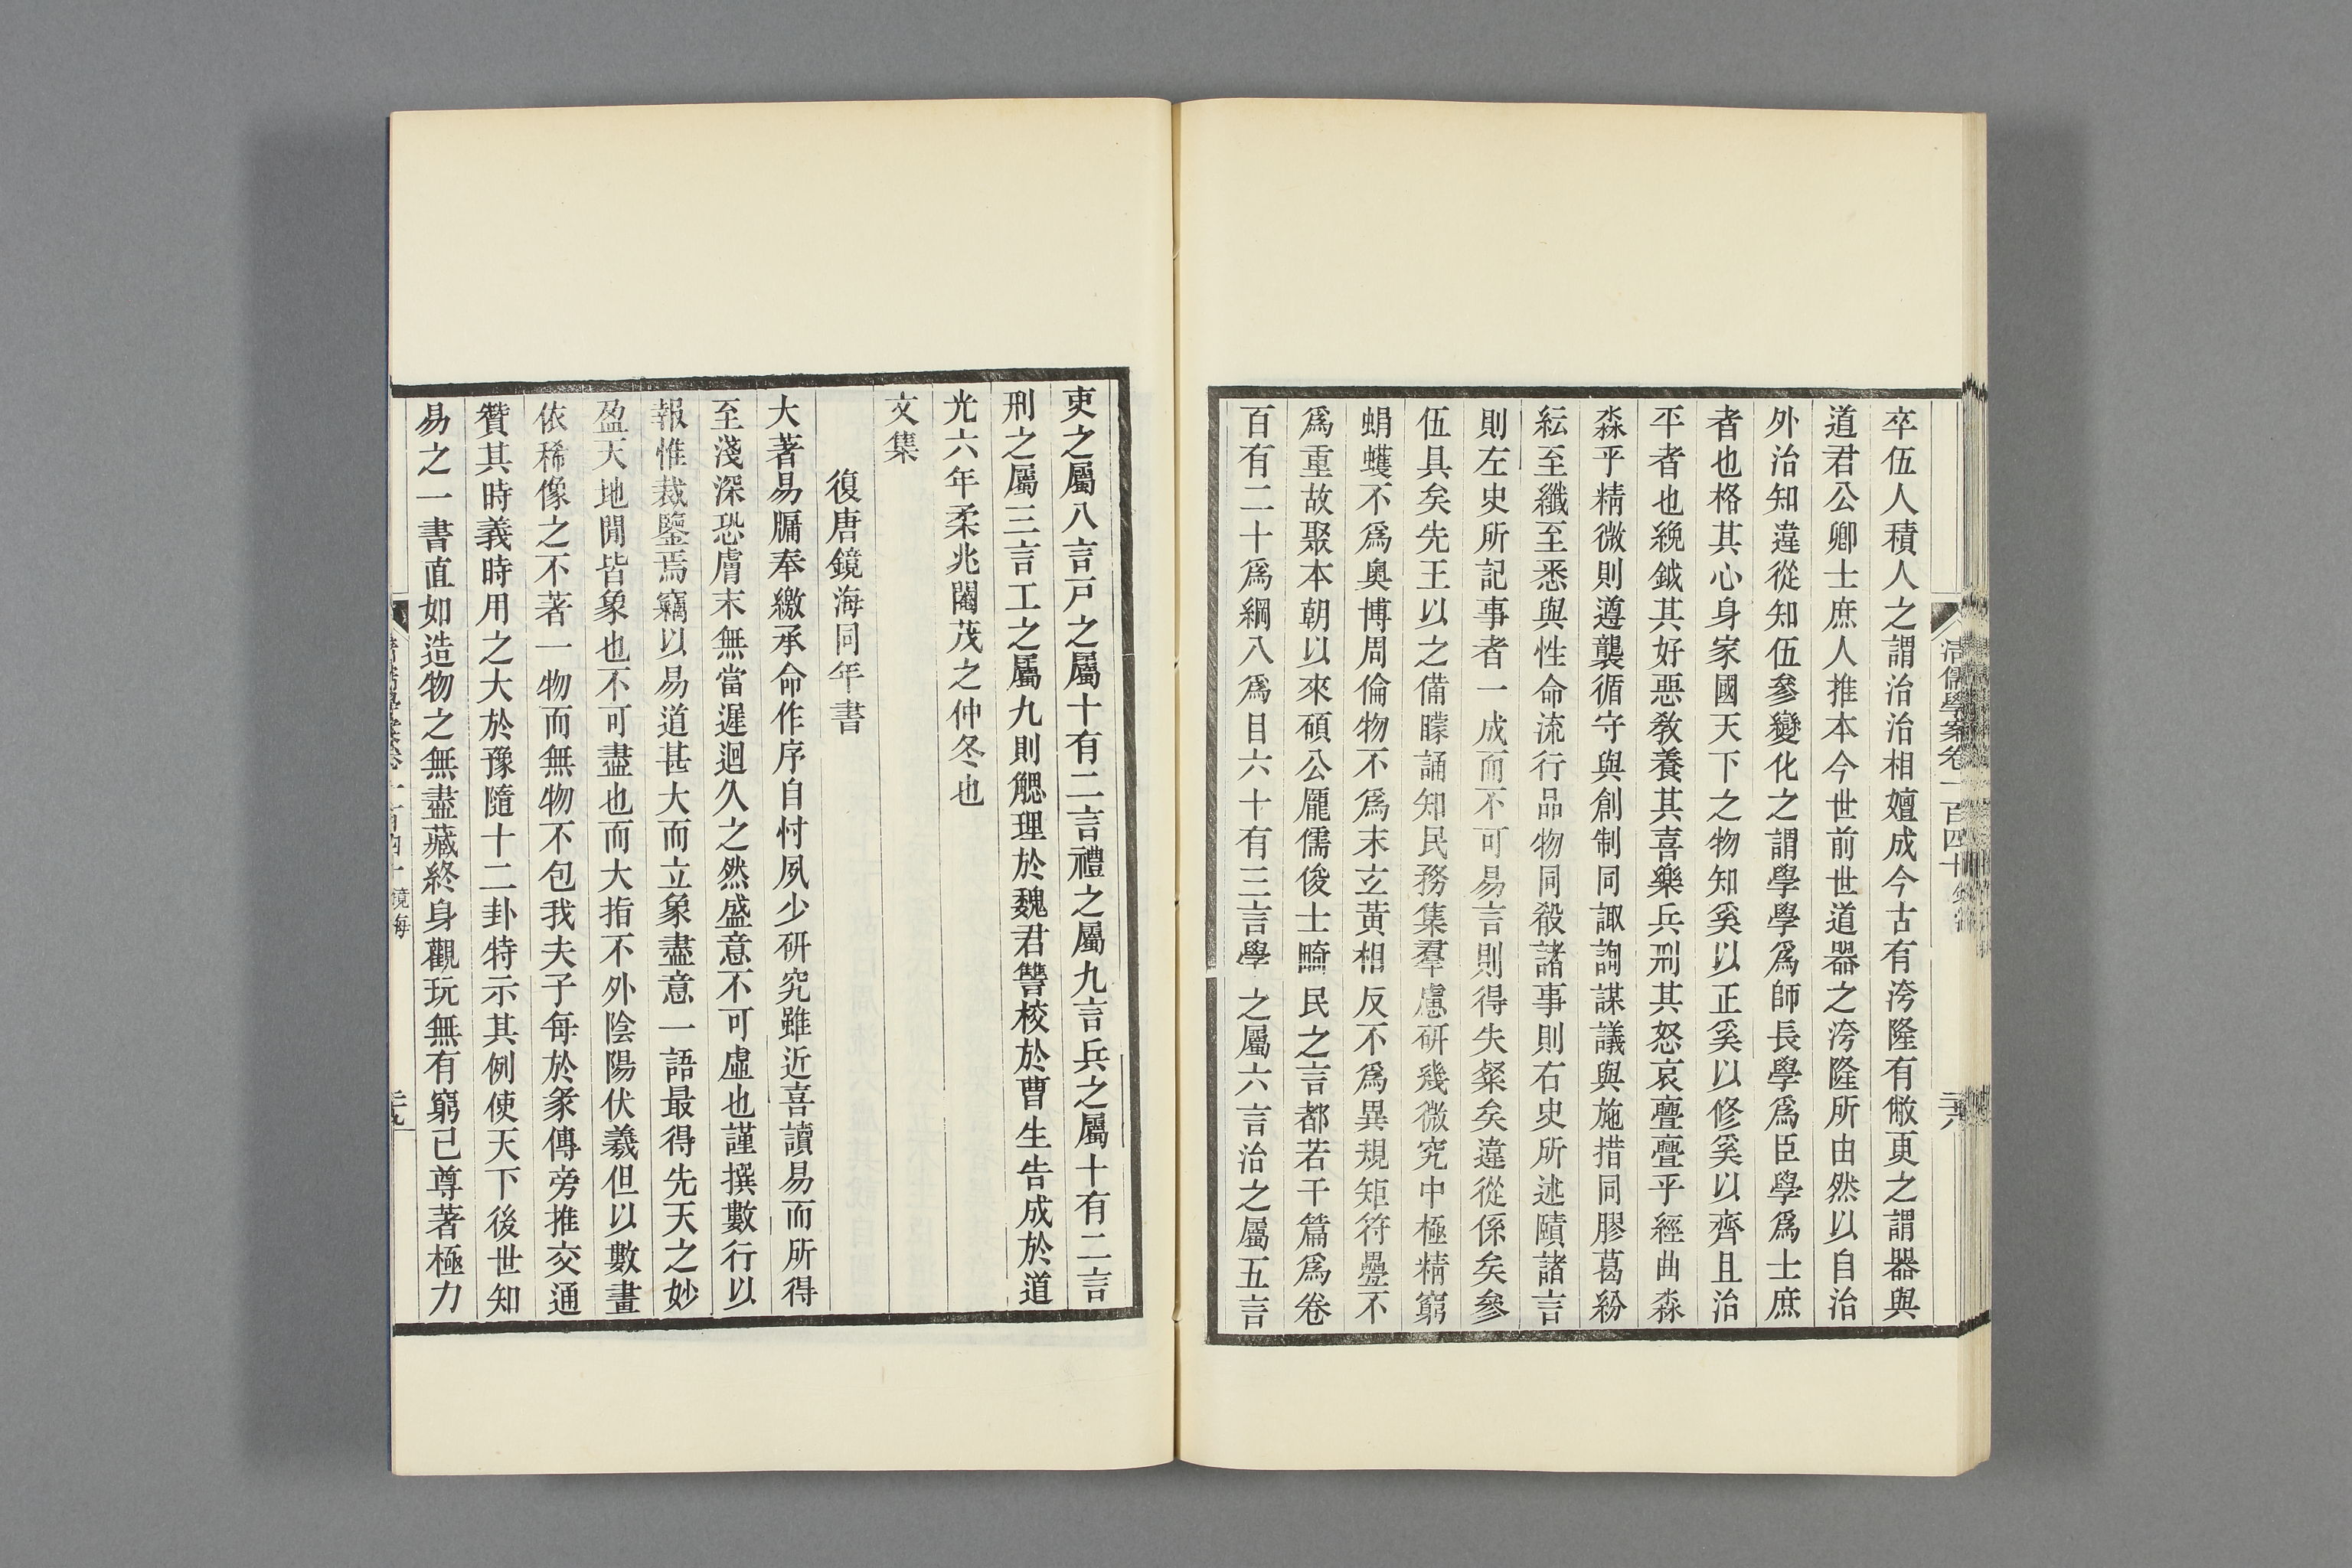 清儒學案卷一百四十
卒伍人積人之謂治治相嬗成今古有洿隆有敝更之謂器與
道君公卿士庶人推本今世前世道器之洿隆所由然以自治
外治知違從知伍參變化之謂學學爲師長學爲臣學爲士庶
者也格其心身家國天下之物知奚以正奚以修奚以齊且治
平者也絻鉞其好惡敎養其喜樂兵刑其怒哀亹亹乎經曲森
森乎精微則遵襲循守與創制同諏詢謀議與施措同膠葛紛
紜至纖至悉與性命流行品物同殽諸事則右史所述賾諸言
則左史所記事者一成而不可易言則得失粲矣違從係矣參
伍具矣先王以之備矇誦知民務集羣慮研幾微究中極精窮
蜎蠖不爲奧博周倫物不爲末玄黃相反不爲異規矩符疊不
爲重故聚本朝以來碩公龐儒俊士畸民之言都若干篇爲卷
百有二十爲綱八爲目六十有三言學之屬六言治之屬五言
吏之屬八言戸之屬十有二言禮之屬九言兵之屬十有二言
刑之屬三言工之屬九則䚡理於魏君讐校於曹生告成於道
光六年柔兆閹茂之仲冬也
文集
復唐鏡海同年書
大著易牖奉繳承命作序自忖夙少研究雖近喜讀易而所得
至淺深恐膚末無當遲迴久之然盛意不可虛也謹撰數行以
報惟裁鑒焉竊以易道甚大而立象盡意一語最得先天之妙
盈天地閒皆象也不可盡也而大指不外陰陽伏羲但以數畫
依稀像之不著一物而無物不包我夫子每於彖傳旁推交通
贊其時義時用之大於豫隨十二卦特示其例使天下後世知
易之一書直如造物之無盡藏終身觀玩無有窮已尊著極力
鏡海